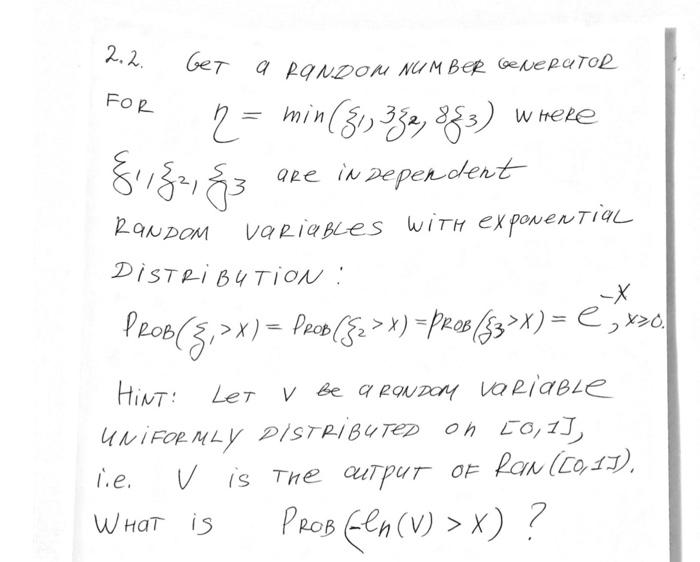 2.2. GET a RANDOM NUMBER GENERATOR
FOR η = min(ξ₁, 3ξ₂, 8ξ₃) WHERE
ξ₁, ξ₂, ξ₃ are independent
RANDOM VARIABLES WITH exponential
DISTRIBUTION:
PROB(ξ₁>X) = PROB(ξ₂>X) = PROB(ξ₃>X) = e^{-X}, X≥0.
HINT: LET V Be a RANDOM VARIABLE
UNIFORMLY DISTRIBUTED ON [0,1],
i.e. V is THE OUTPUT OF RAN([0,1]).
WHAT is PROB(-ln(V) > X) ?